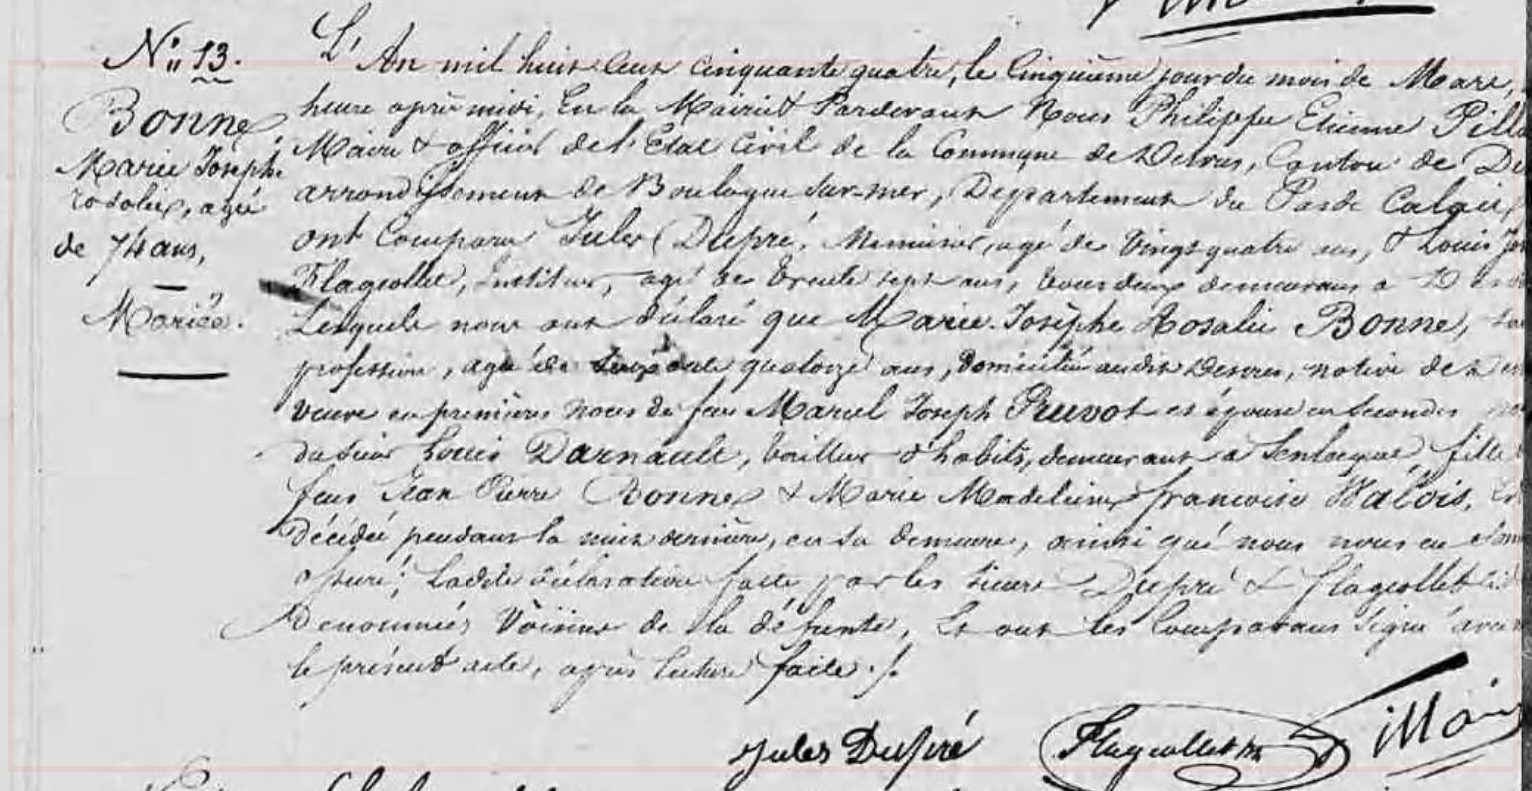 N° 13.
Bonne,
Marie Joseph
rosalie, agée
de 74 ans,
Mariée.
L'An mil huit cent cinquante quatre, le Cinquième jour du mois de Mars,
heure après midi, En la Mairie & Pardevant Nous Philippe Etienne
Maire & officier de l'Etat Civil de la Commune de Desvres, Canton de
arrondissement de Boulogne sur-mer, Département du Pas de Calais
ont Comparu Jules Dupré, Menuisier, agé de Vingt quatre ans, & Louis
Flageollet, Instituteur, agé de trente sept ans, tous deux demeurans à
Lesquels nous ont déclaré que Marie Josèphe Rosalie Bonne,
profession, agée de soixante quatorze ans, domiciliée audit Desvres, native de
veuve en premières noces de feu Marcel Joseph Pruvot et épouse en secondes
du sieur Louis Darnault, tailleur d'habits, demeurant à Senlecques, fille
feus Jean Pierre Bonne & Marie Madeleine françoise Walois,
décédée pendant la nuit dernière, en sa demeure, ainsi que nous nous en
assuré; Ladite déclaration faite par les sieurs Dupré & Flageollet
Denommés Voisins de la défunte, Et ont les Comparans signé avec
le présent acte, après lecture faite ./.
Jules Dupré Flageollet